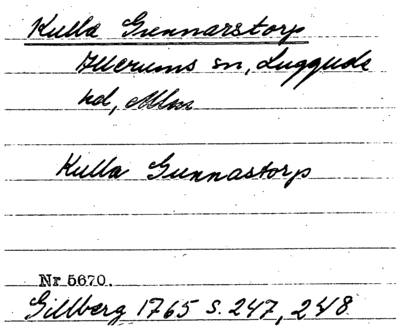 Kulla Gunnarstorp
Allerums sn, Luggude
hd, Mlm
Kulla Gunnastorp
Nr 5670.
Gillberg 1765 s. 247, 248.